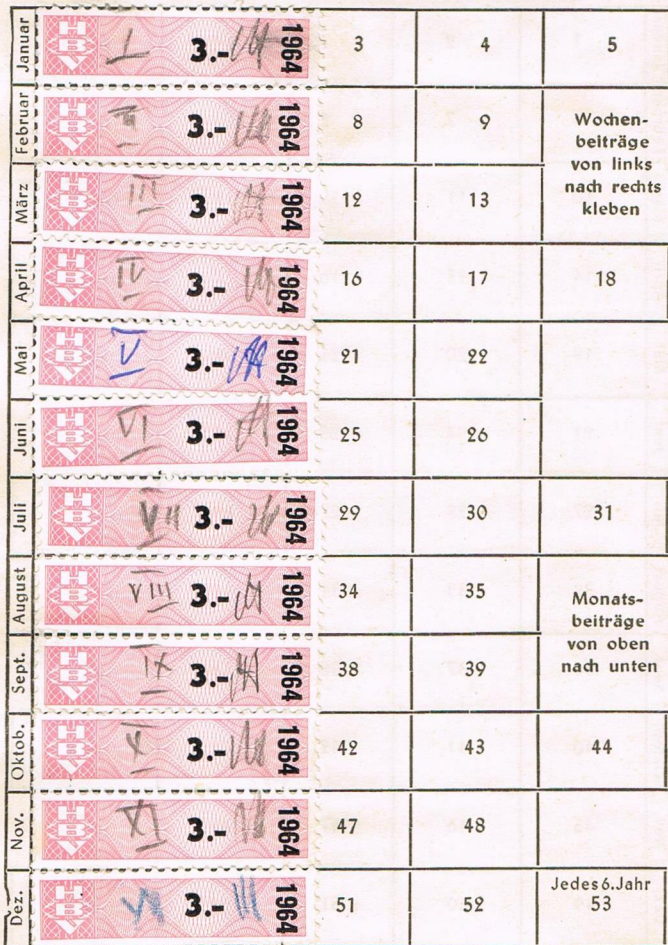 Januar HBV I 3.- 1964 3 4 5
Februar HBV II 3.- 1964 8 9 Wochen-
beiträge
von links
nach rechts
kleben
März HBV III 3.- 1964 12 13
April HBV IV 3.- 1964 16 17 18
Mai HBV V 3.- 1964 21 22
Juni HBV VI 3.- 1964 25 26
Juli HBV VII 3.- 1964 29 30 31
August HBV VIII 3.- 1964 34 35 Monats-
beiträge
von oben
nach unten
Sept. HBV IX 3.- 1964 38 39
Oktob. HBV X 3.- 1964 42 43 44
Nov. HBV XI 3.- 1964 47 48
Dez. HBV 3.- 1964 51 52 Jedes 6. Jahr
53